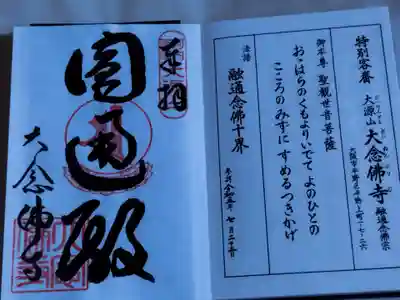 特別客番
大源山 大念佛寺 融通念佛宗
大阪市平野区平野上町一-七-二六
御本尊 聖観世音菩薩
おゝはらのくもよりいでて よのひとの
こころのみずに すめるつきかげ
法語
融通念佛十界
奉拝
圓通殿
大念佛寺